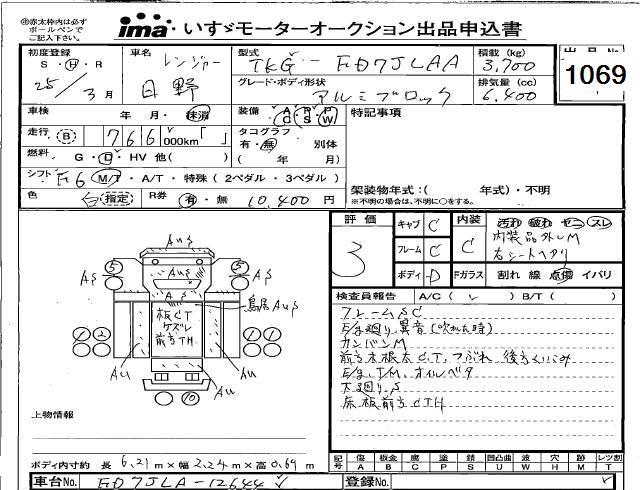 ㊟赤太枠内は必ず
ボールペンで
ご記入下さい。
ima いすゞモーターオークション出品申込書
初度登録 車名 レンジャー 型式 TKG-FD7JLAA 積載 (kg) 3,700 出品No.
S・H・R 25/3月 日野 グレード・ボディ形状 アルミブロック 排気量 (cc) 6,400 1069
車検 年 月・抹消 装備 AC PS AW 特記事項
走行 B 766 000km「 」 タコグラフ 有・無 別体
燃料 G・D・HV 他( ) ( 年 月)
シフト F6 M/T・A/T・特殊(2ペダル・3ペダル) 架装物年式:( 年式)・不明
色 白(指定) R券 有・無 10,400円 ※不明の場合は、不明に○をする。
評価 キャブ C 内装 汚れ 破れ ヤニ スレ
3 フレーム C C 内装品外しM
右シートヘタリ
ボディ D Fガラス 割れ 線 点傷 イバリ
検査員報告 A/C( ) B/T( )
フレームSC
E/g廻り異音(吹かした時)
カンバンM
E/g、T/M、オイルベタ
下廻りS
床板前方CTH
AuS
AuS
AS
S
S
AS
AS
鳥居AuS
板CT
ケズレ
前方TH
Au
Au
Au
10
上物情報
ボディ内寸約 長 6.21m×幅 2.24m×高 0.69m
記号 傷 A 板金 B 腐 C 塗 P 錆 S 凹凸曲 U 波 W 穴 H 無 M 跡 X レツ割 T
車台No. FD7JLA-12644 登録No.